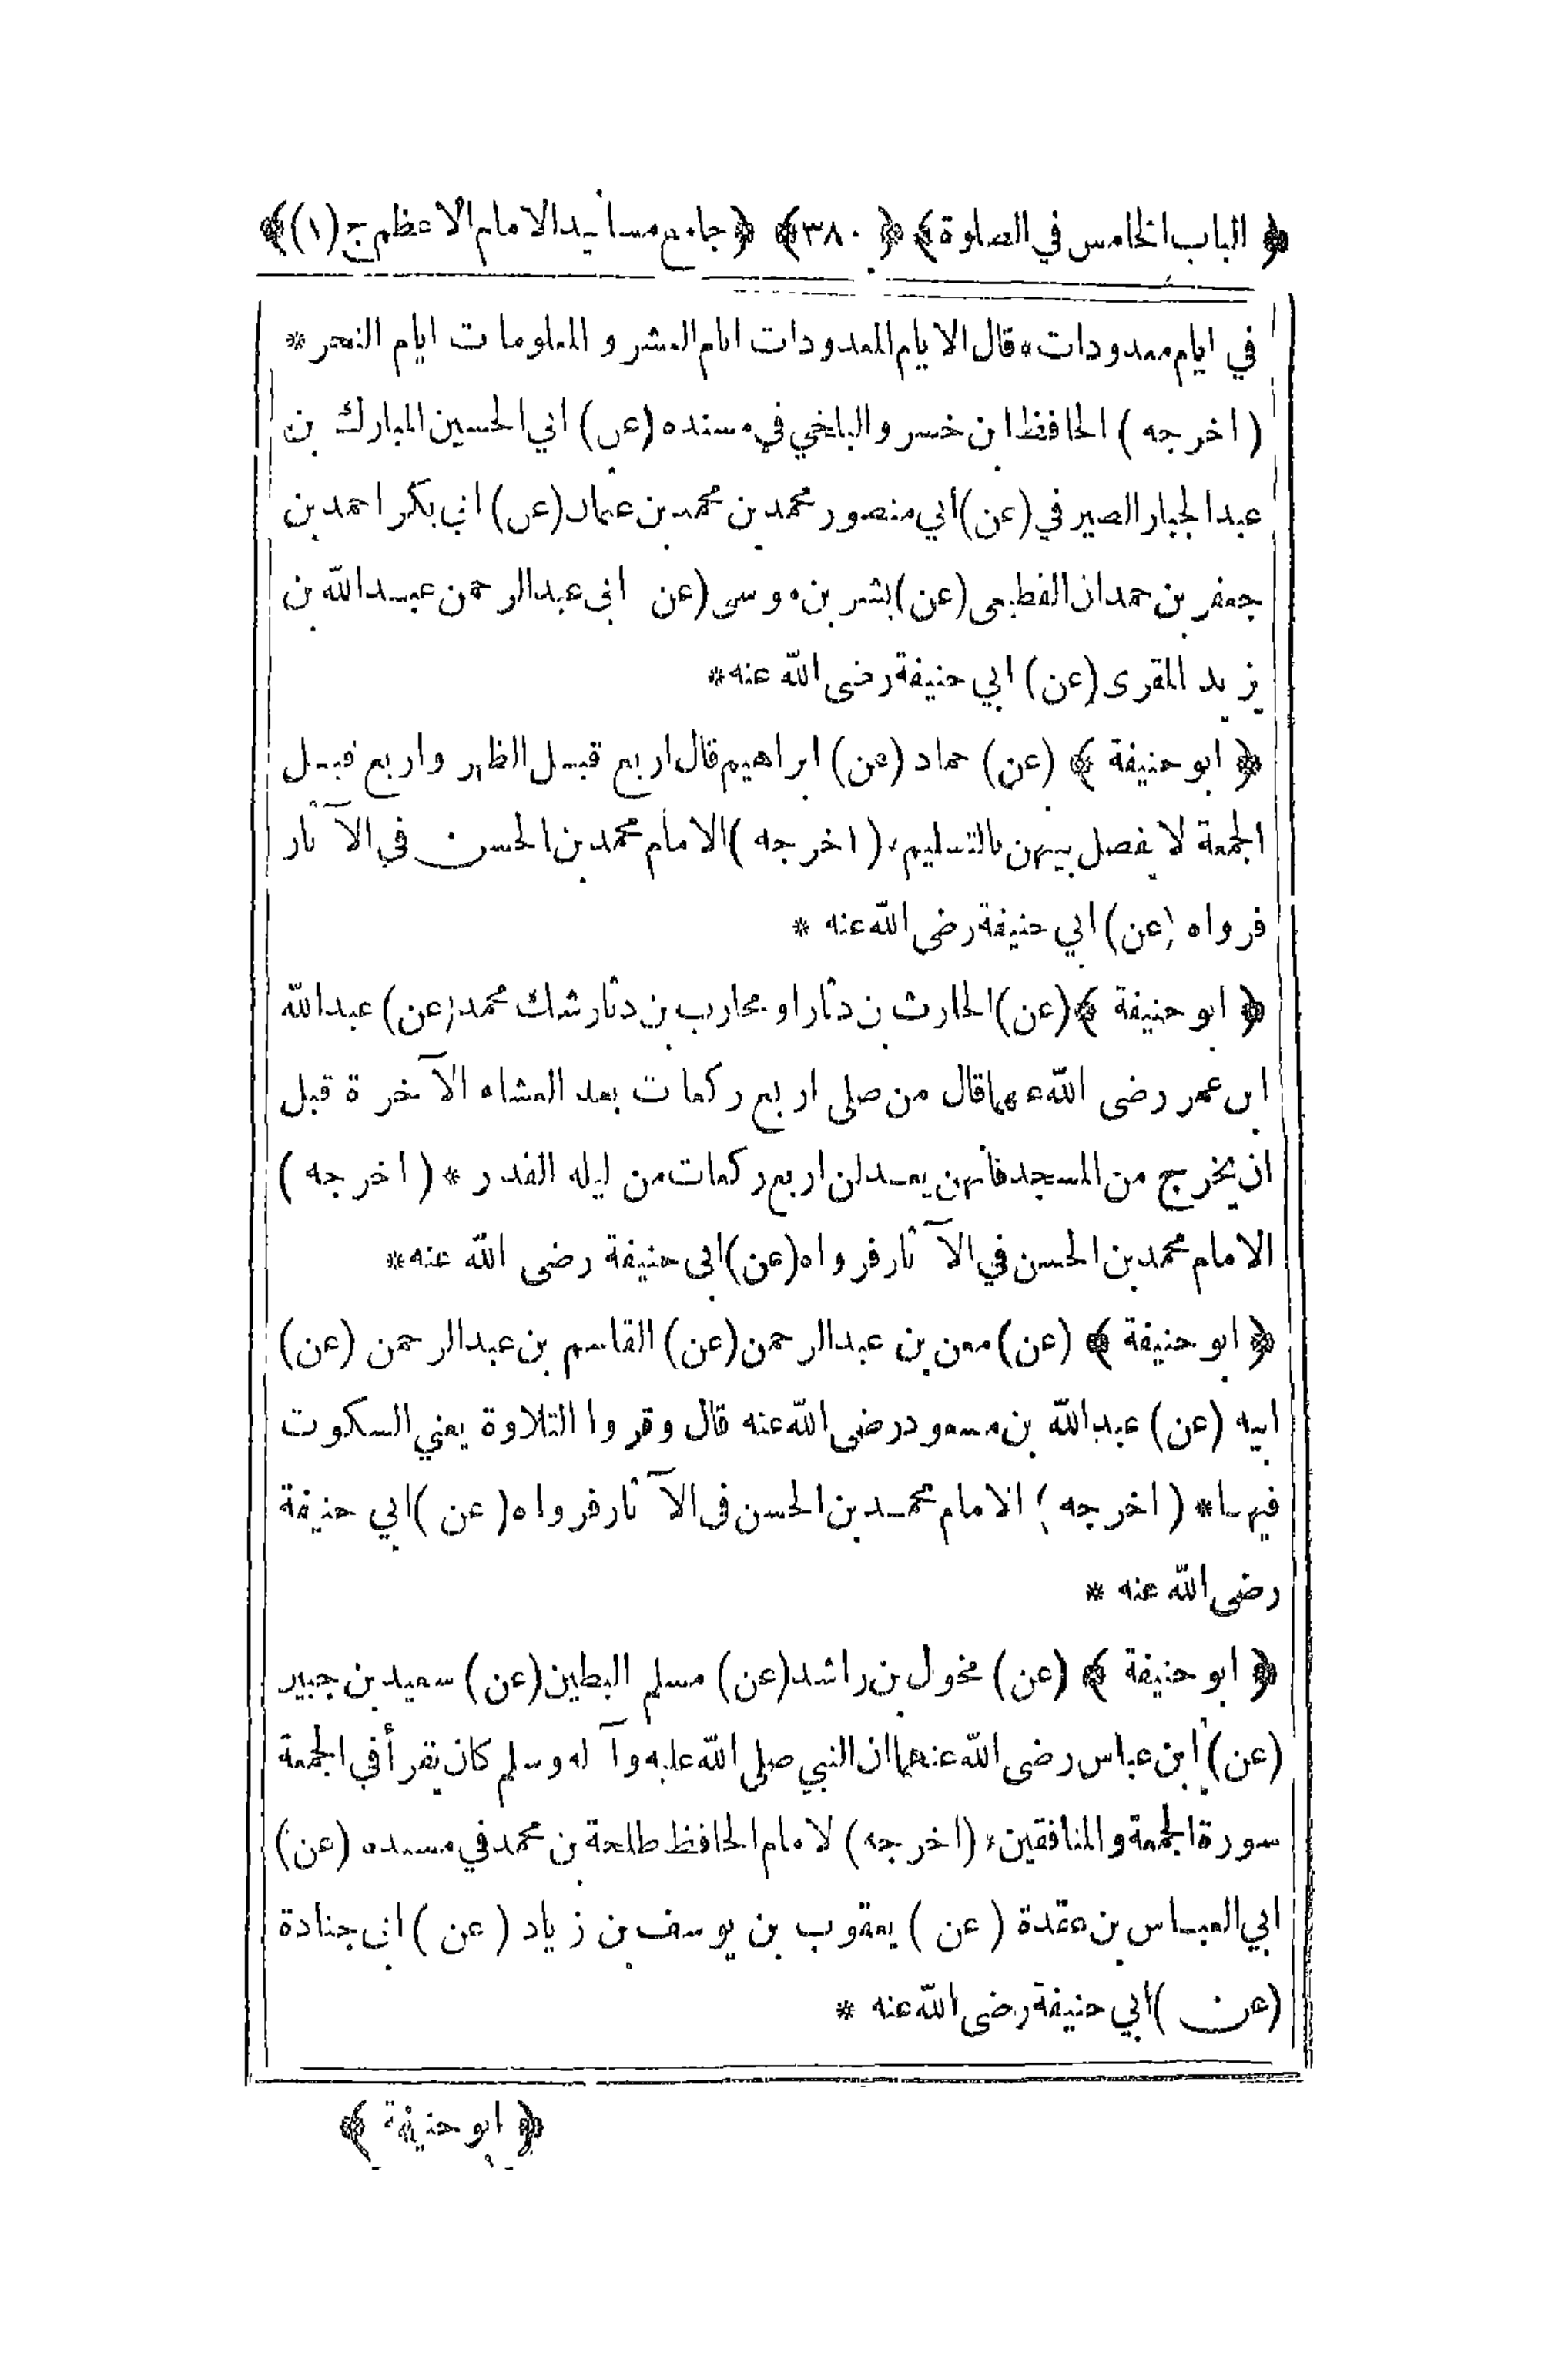 ﴿ الباب الخامس في الصلوة ﴾ ﴿ ٣٨٠ ﴾ ﴿ جامع مسانيد الامام الاعظم ج (١) ﴾
في ايام معدودات * قال الايام المعدودات ايام العشر و المعلومات ايام النحر *
( اخرجه ) الحافظ ابن خسرو البلخي في مسنده (عن) ابي الحسين المبارك بن
عبد الجبار الصيرفي (عن) ابي منصور محمد بن محمد بن عثمان (عن) ابي بكر احمد بن
جعفر بن حمدان القطيعى (عن) بشر بن موسى (عن ابى عبد الرحمن عبد الله بن
يزيد المقرى (عن) ابي حنيفة رضى الله عنه *
﴿ ابو حنيفة ﴾ (عن) حماد (عن) ابراهيم قال اربع قبل الظهر واربع قبل
الجمعة لا يفصل بينهن بالتسليم * ( اخرجه ) الامام محمد بن الحسن في الآثار
فرواه (عن) ابي حنيفة رضى الله عنه *
﴿ ابو حنيفة ﴾ (عن) الحارث بن دثار او محارب بن دثار شك محمد (عن) عبد الله
ابن عمر رضى الله عنهما قال من صلى اربع ركعات بعد العشاء الآخرة قبل
ان يخرج من المسجد فانهن يعدلن اربع ركعات من ليلة القدر * ( اخرجه )
الامام محمد بن الحسن في الآثار فرواه (عن) ابى حنيفة رضى الله عنه *
﴿ ابو حنيفة ﴾ (عن) معن بن عبد الرحمن (عن) القاسم بن عبد الرحمن (عن)
ابيه (عن) عبد الله بن مسعود رضى الله عنه قال وقروا التلاوة يعني السكوت
فيها * ( اخرجه ) الامام محمد بن الحسن فى الآثار فرواه ( عن ) ابي حنيفة
رضى الله عنه *
﴿ ابو حنيفة ﴾ (عن) مخول بن راشد (عن) مسلم البطين (عن) سعيد بن جبير
(عن) ابن عباس رضى الله عنهما ان النبي صلى الله عليه وآله وسلم كان يقرأ في الجمعة
سورة الجمعة و المنافقين * (اخرجه) لامام الحافظ طلحة بن محمد في مسنده (عن)
ابي العباس بن عقدة ( عن ) يعقوب بن يوسف بن زياد ( عن ) ابى جنادة
(عن ) ابي حنيفة رضى الله عنه *
﴿ ابو حنيفة ﴾